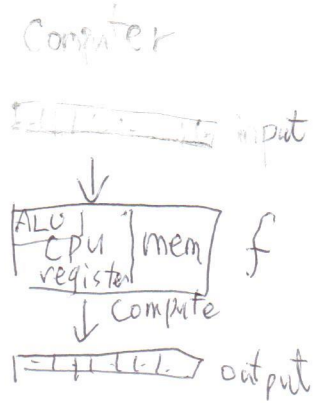 Computer
input
ALU
CPU mem f
register
Compute
output